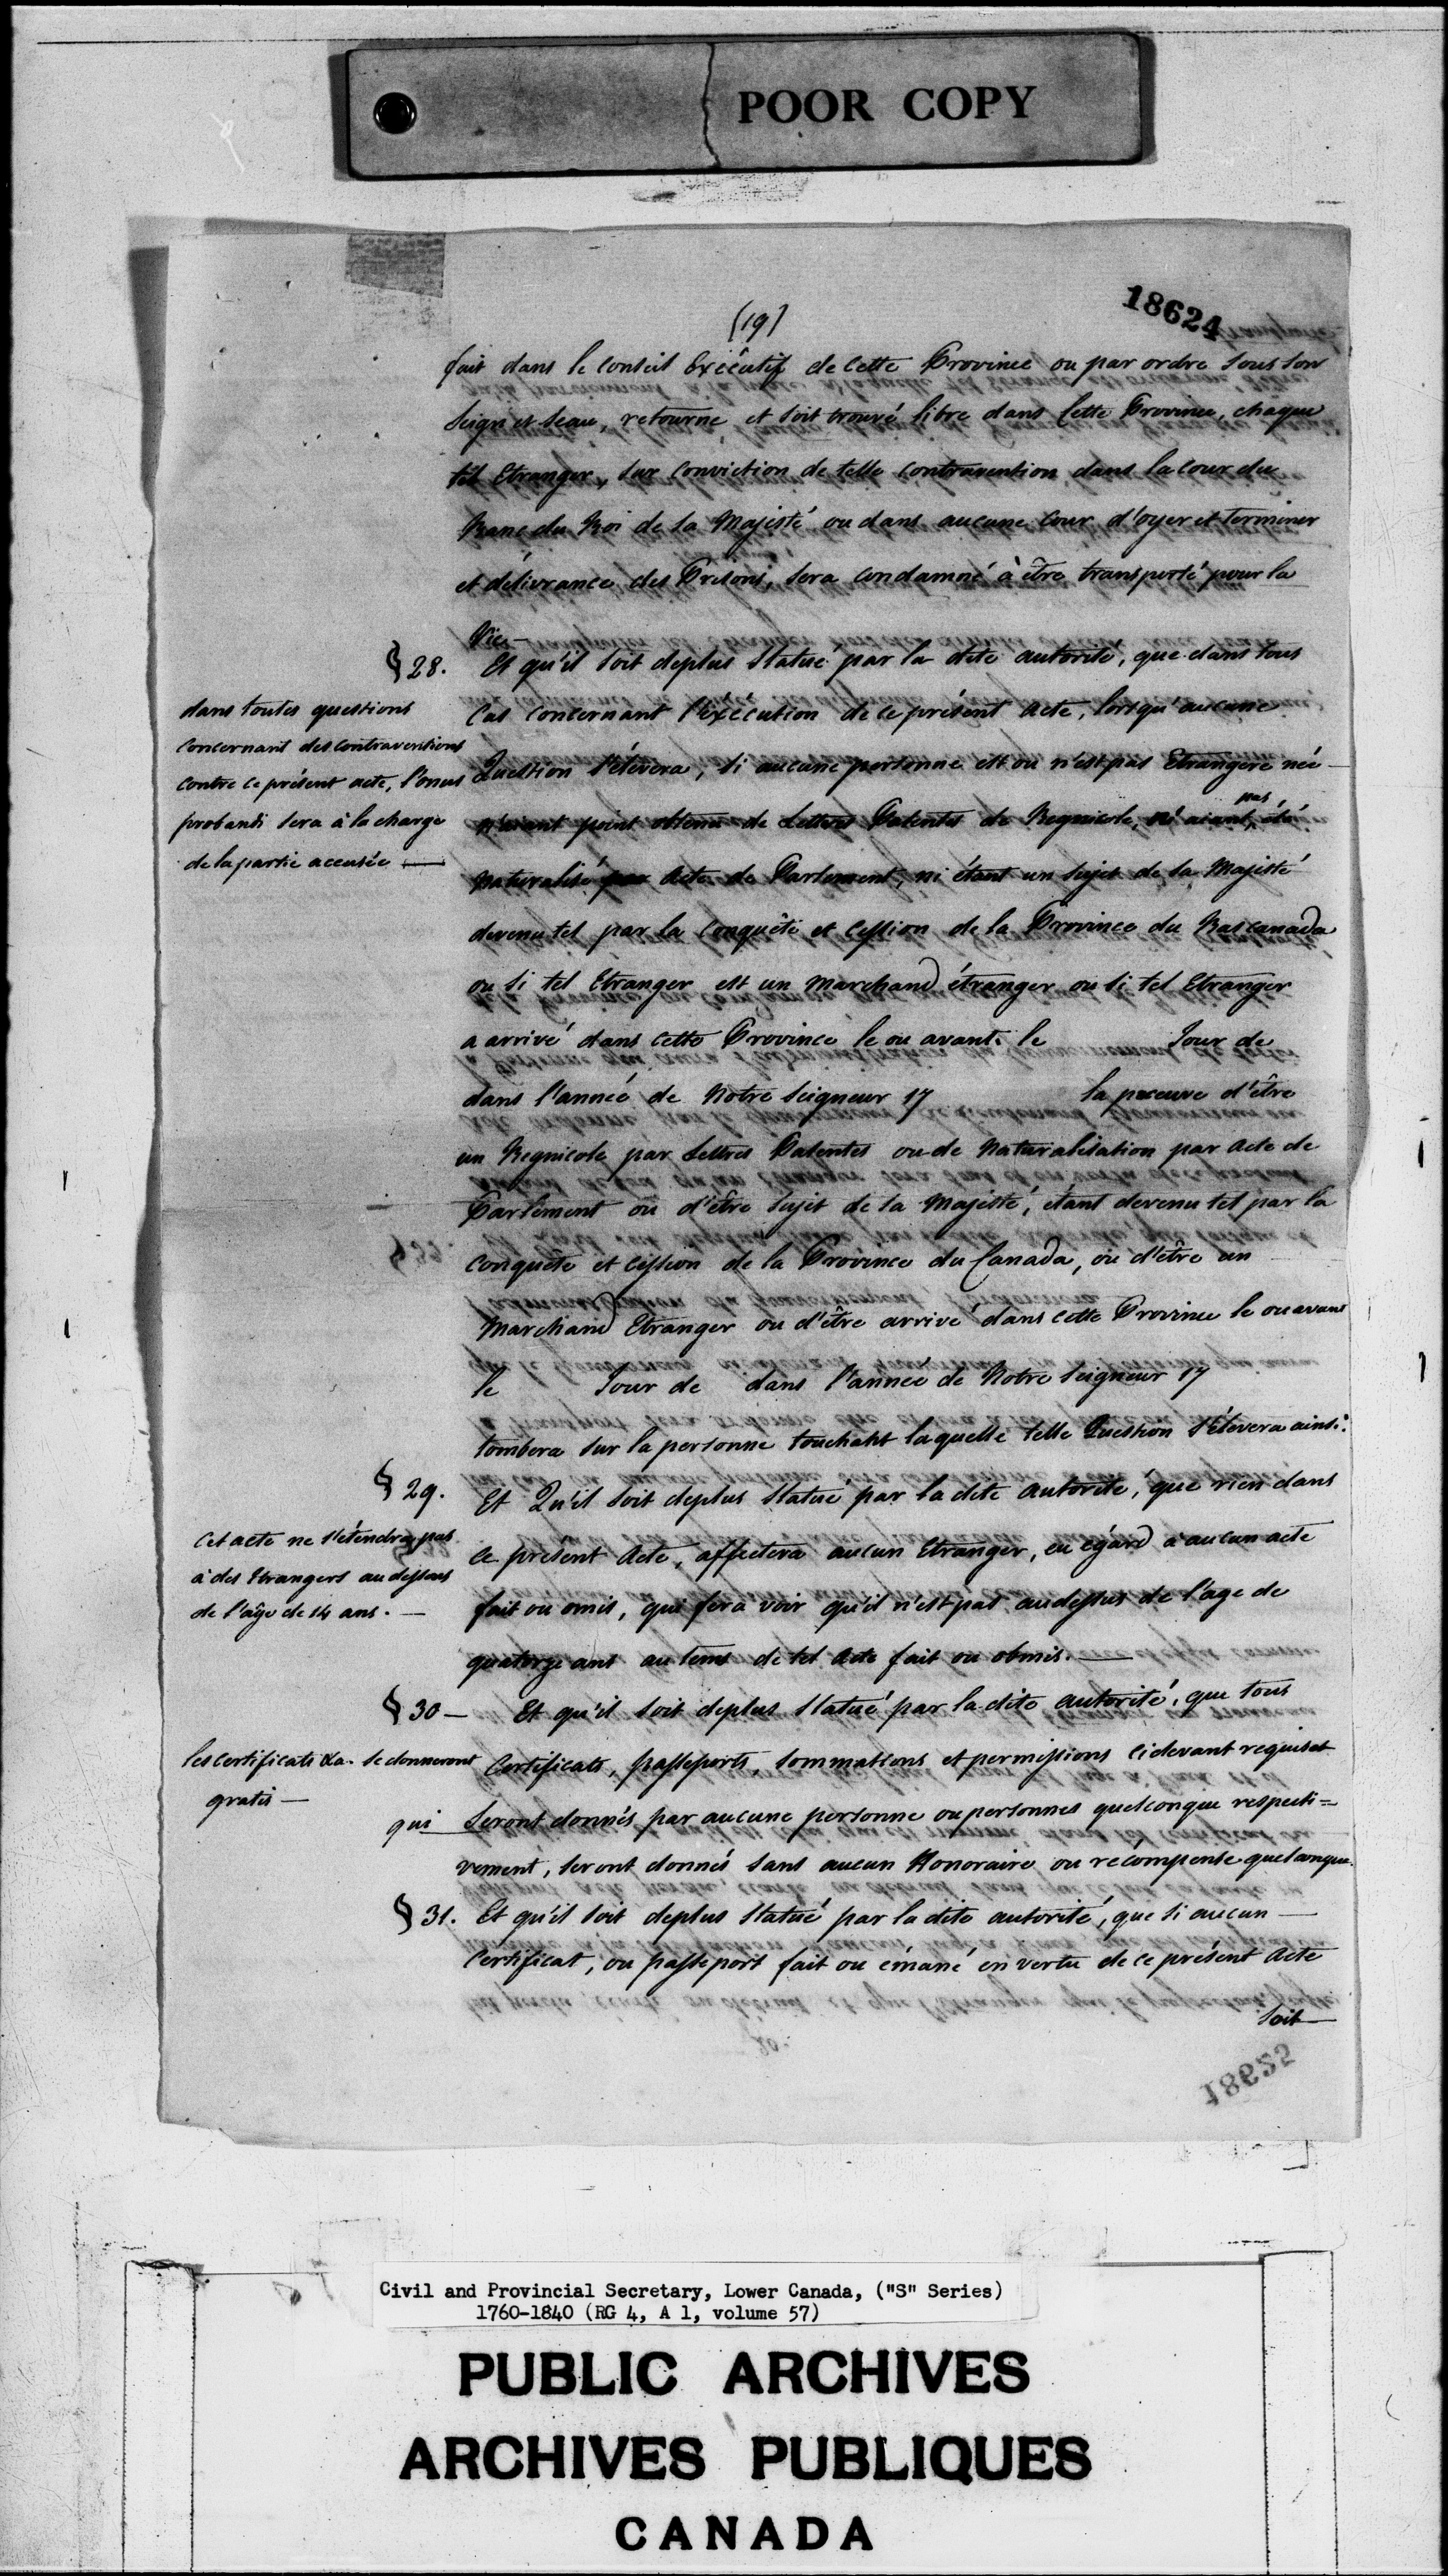 POOR COPY
18624
(19)
fait dans le conseil Exécutif de cette Province ou par ordre sous son
Seign et seau, retourne et soit trouvé libre dans cette Province, chaque
tel Etranger, sur conviction de telle contravention dans la cour du
Banc du Roi de sa Majesté ou dans aucune cour d'oyer et terminer
et délivrance des Prisons, sera condamné à être transporté pour la
Vie—
§ 28. Et qu'il soit deplus Statué par la dite autorité, que dans tous
cas concernant l'éxécution de ce présent acte, lorsqu'aucune
Question s'élèvera, si aucune personne est ou n'est pas Etrangere née
n'aiant point obtenu de Lettres Patentes de Regnicole, n'aiant pas été
naturalisé par Acte de Parlement, ni étant un sujet de sa Majesté
devenu tel par la Conquête et Cession de la Province du Bas canada
ou si tel Etranger est un Marchand étranger ou si tel Etranger
a arrivé dans cette Province le ou avant le Jour de
dans l'année de Notre Seigneur 17 la preuve d'être
un Regnicole par Lettres Patentes ou de Naturalisation par Acte de
Parlement ou d'être sujet de sa Majesté, étant devenu tel par la
conquête et cession de la Province du Canada, ou d'être un
Marchand Etranger ou d'être arrivé dans cette Province le ou avant
le Jour de dans l'année de Notre Seigneur 17
tombera sur la personne touchant laquelle telle Question s'élevera ainsi.
dans toutes questions
concernant des contraventions
contre ce présent acte, l'onus
probandi sera à la charge
de la partie accusée —
§ 29. Et Qu'il soit deplus Statué par la dite autorité, que rien dans
ce présent Acte, affectera aucun Etranger, eu égard a aucun acte
fait ou omis, qui fera voir qu'il n'est pas audessus de l'age de
quatorze ans au tems de tel Acte fait ou obmis. —
Cet acte ne s'étendra pas
à des Etrangers au dessous
de l'âge de 14 ans. —
§ 30 — Et qu'il soit deplus Statué par la dite autorité, que tous
Certificats, passeports, sommations et permissions cidevant requises
qui Seront donnés par aucune personne ou personnes quelconque respecti=
vement, seront donnés sans aucun Honoraire ou récompense quelconque.
les certificats &a. se donneront
gratis —
§ 31. Et qu'il soit deplus Statué par la dite autorité, que si aucun —
Certificat, ou passeport fait ou émané en vertu de ce présent Acte
soit —
18625
Civil and Provincial Secretary, Lower Canada, ("S" Series)
1760-1840 (RG 4, A 1, volume 57)
PUBLIC ARCHIVES
ARCHIVES PUBLIQUES
CANADA